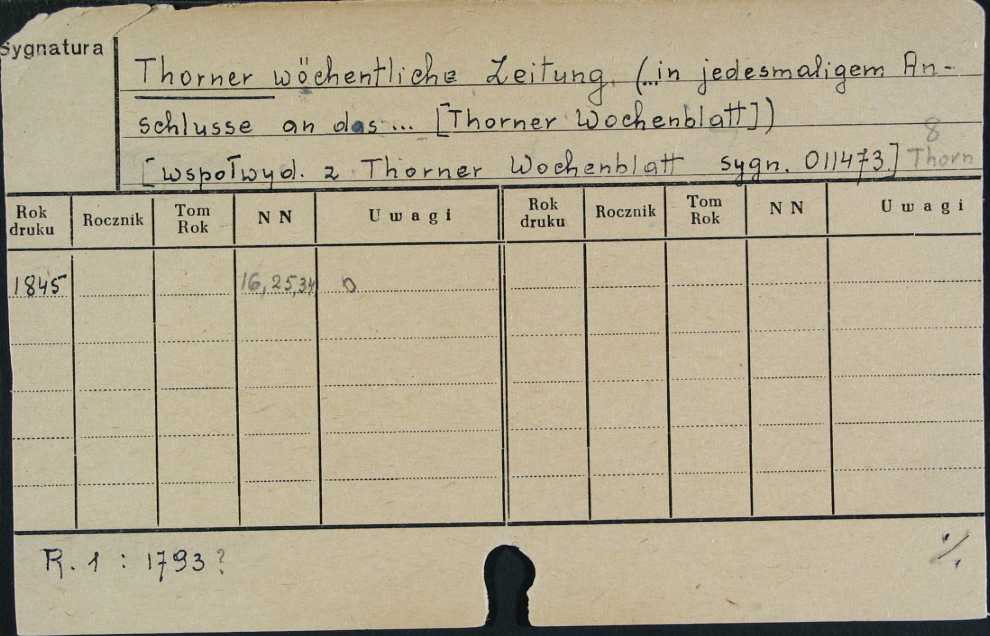 Sygnatura
Thorner wöchentliche Zeitung. (...in jedesmaligem An-
schlusse an das... [Thorner Wochenblatt])
8
[wspołwyd. z Thorner Wochenblatt sygn. 011473] Thorn
Rok druku Rocznik Tom Rok NN Uwagi Rok druku Rocznik Tom Rok NN Uwagi
1845 16, 25, 34
R. 1 : 1793?